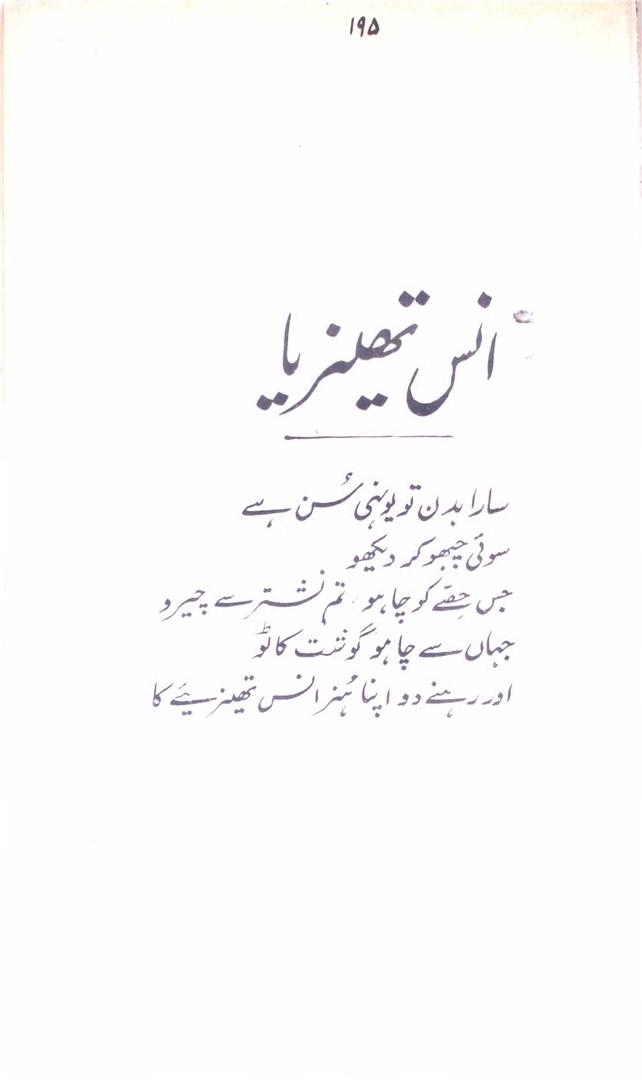 ۱۹۵
انس تھینزیا
سارا بدن تو یونہی سُن ہے
سوئی چبھو کر دیکھو
جس حِصّے کو چاہو، تم نشتر سے چیرو
جہاں سے چاہو گوشت کاٹو
اور رہنے دو اپنا ہُنر انس تھینزیئے کا